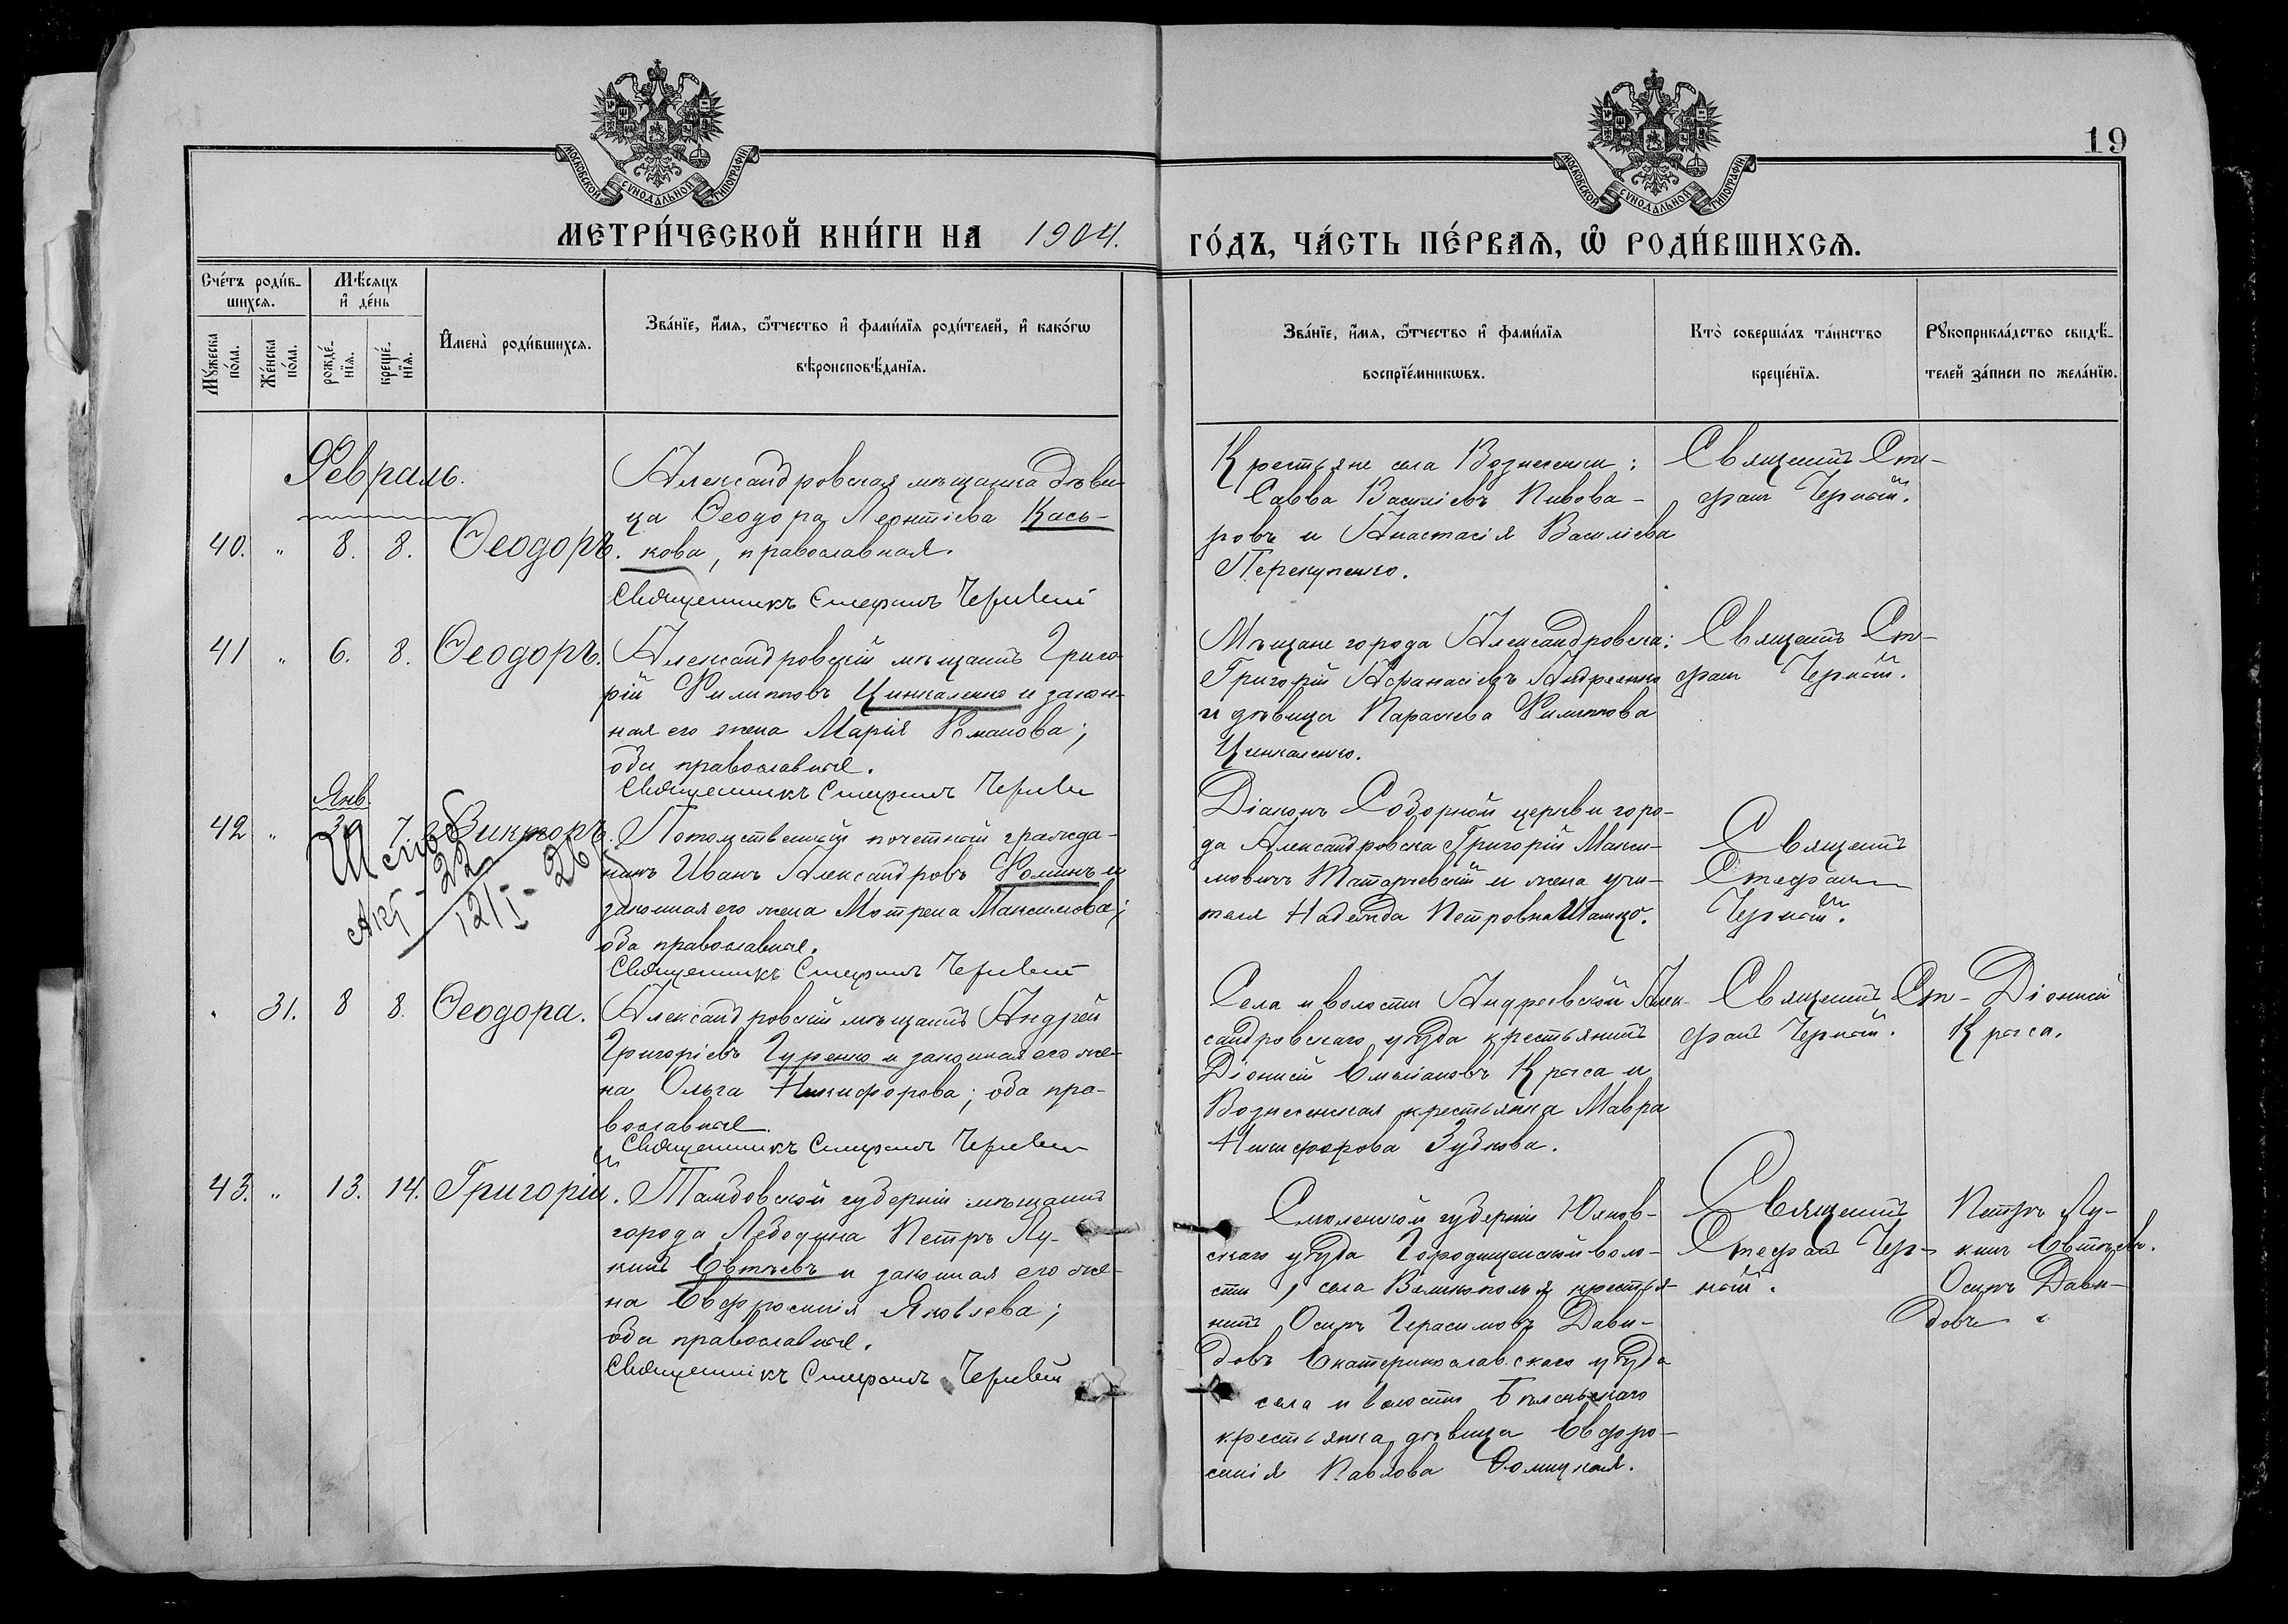 МОСКОВСКОЙ СѴНОДАЛЬНОЙ ТИПОГРАФІИ
МОСКОВСКОЙ СѴНОДАЛЬНОЙ ТИПОГРАФІИ
19
МЕТРИ́ЧЕСКОЙ КНИ́ГИ НА 1904.
ГО́ДЪ, ЧА́СТЬ ПЕ́РВАѦ, Ѡ҆ РОДИ́ВШИХСѦ.
Счє́тъ роди́в-
шихсѧ.
Мꙋ́жеска по́ла.
Же́нска по́ла.
Мѣ́сѧцъ
и҆ де́нь
рожде́-
нїѧ.
креще́-
нїѧ.
И҆мена̀ роди́вшихсѧ.
Зва́нїе, и҆́мѧ, ѻ҆́тчество и҆ фами́лїѧ роди́телей, и҆ како́гѡ
вѣроисповѣ́данїѧ.
Зва́нїе, и҆́мѧ, ѻ҆́тчество и҆ фами́лїѧ
воспрїе́мникѡвъ.
Кто̀ соверша́лъ та́инство
креще́нїѧ.
Рꙋкоприкла́дство свидѣ́-
телей за́писи по жела́нїю.
Февраль.
40. " 8. 8. Ѳеодоръ.
Александровская мѣщанка дѣви-
ца Ѳеодора Леонтіева Кась-
кова, православная.
Священникъ Стефанъ
Крестьяне села Вознесенки:
Савва Василіевъ Пивова-
ровъ и Анастасія Василіева
Перекупенко.
Священ. Сте-
фан Черный.
41 " 6. 8. Ѳеодоръ.
Александровскій мѣщанинъ Григо-
рій Филипповъ Цинкаленко и закон-
ная его жена Марія Романова;
оба православные.
Священникъ Стефанъ
Мѣщане города Александровска:
Григорій Афанасіевъ Андреенко
и дѣвица Параскева Филиппова
Цинкаленко.
Священ. Сте-
фан Черный.
Янв.
42 " 30 7. Викторъ.
Акт - 22
12/I - 26
Потомственный почетный гражда-
нинъ Иванъ Александровъ Фоминъ и
законная его жена Мотрена Максимова;
оба православные.
Священникъ Стефанъ
Діаконъ Соборной церкви горо-
да Александровска Григорій Макси-
мовичъ и жена учи-
теля Надежда Петровна
Священ.
Стефан
Черный.
" 31. 8 8. Ѳеодора.
Александровскій мѣщанинъ Андрей
Григоріевъ Гуренко и законная его же-
на Ольга Никифорова; оба пра-
вославные.
Священникъ Стефанъ
Села и волости Андреевской Алек-
сандровскаго уѣзда крестьянинъ
Діонисій Емеліановъ Крыса и
Вознесенская крестьянка Мавра
Никифорова Зубкова.
Священ. Сте-
фан Черный.
Діонисій
Крыса.
43. " 13. 14. Григорій.
Тамбовской губерніи мѣщанинъ
города Лебедяна Петръ Лу-
кинъ Евтѣевъ и законная его же-
на Евфросинія Яковлева;
оба православные.
Священникъ Стефанъ
Смоленской губерніи Юхнов-
скаго уѣзда Городищенской воло-
сти, села Великополья крестья-
нинъ Осипъ Герасимовъ Давы-
довъ Екатеринославскаго уѣзда
села и волости
крестьянка дѣвица Евфро-
синія Павлова
Священ.
Стефан Чер-
ный.
Петръ Лу-
кинъ Евтѣевъ.
Осипъ Давы-
довъ